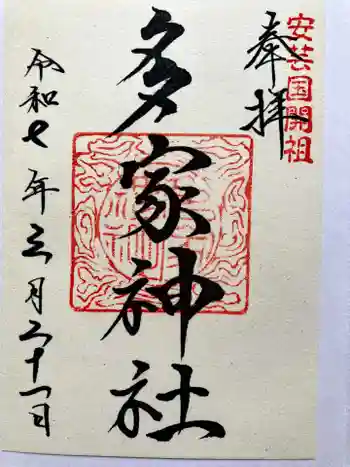 安芸国開祖
奉拝
多家神社
令和七年三月二十一日